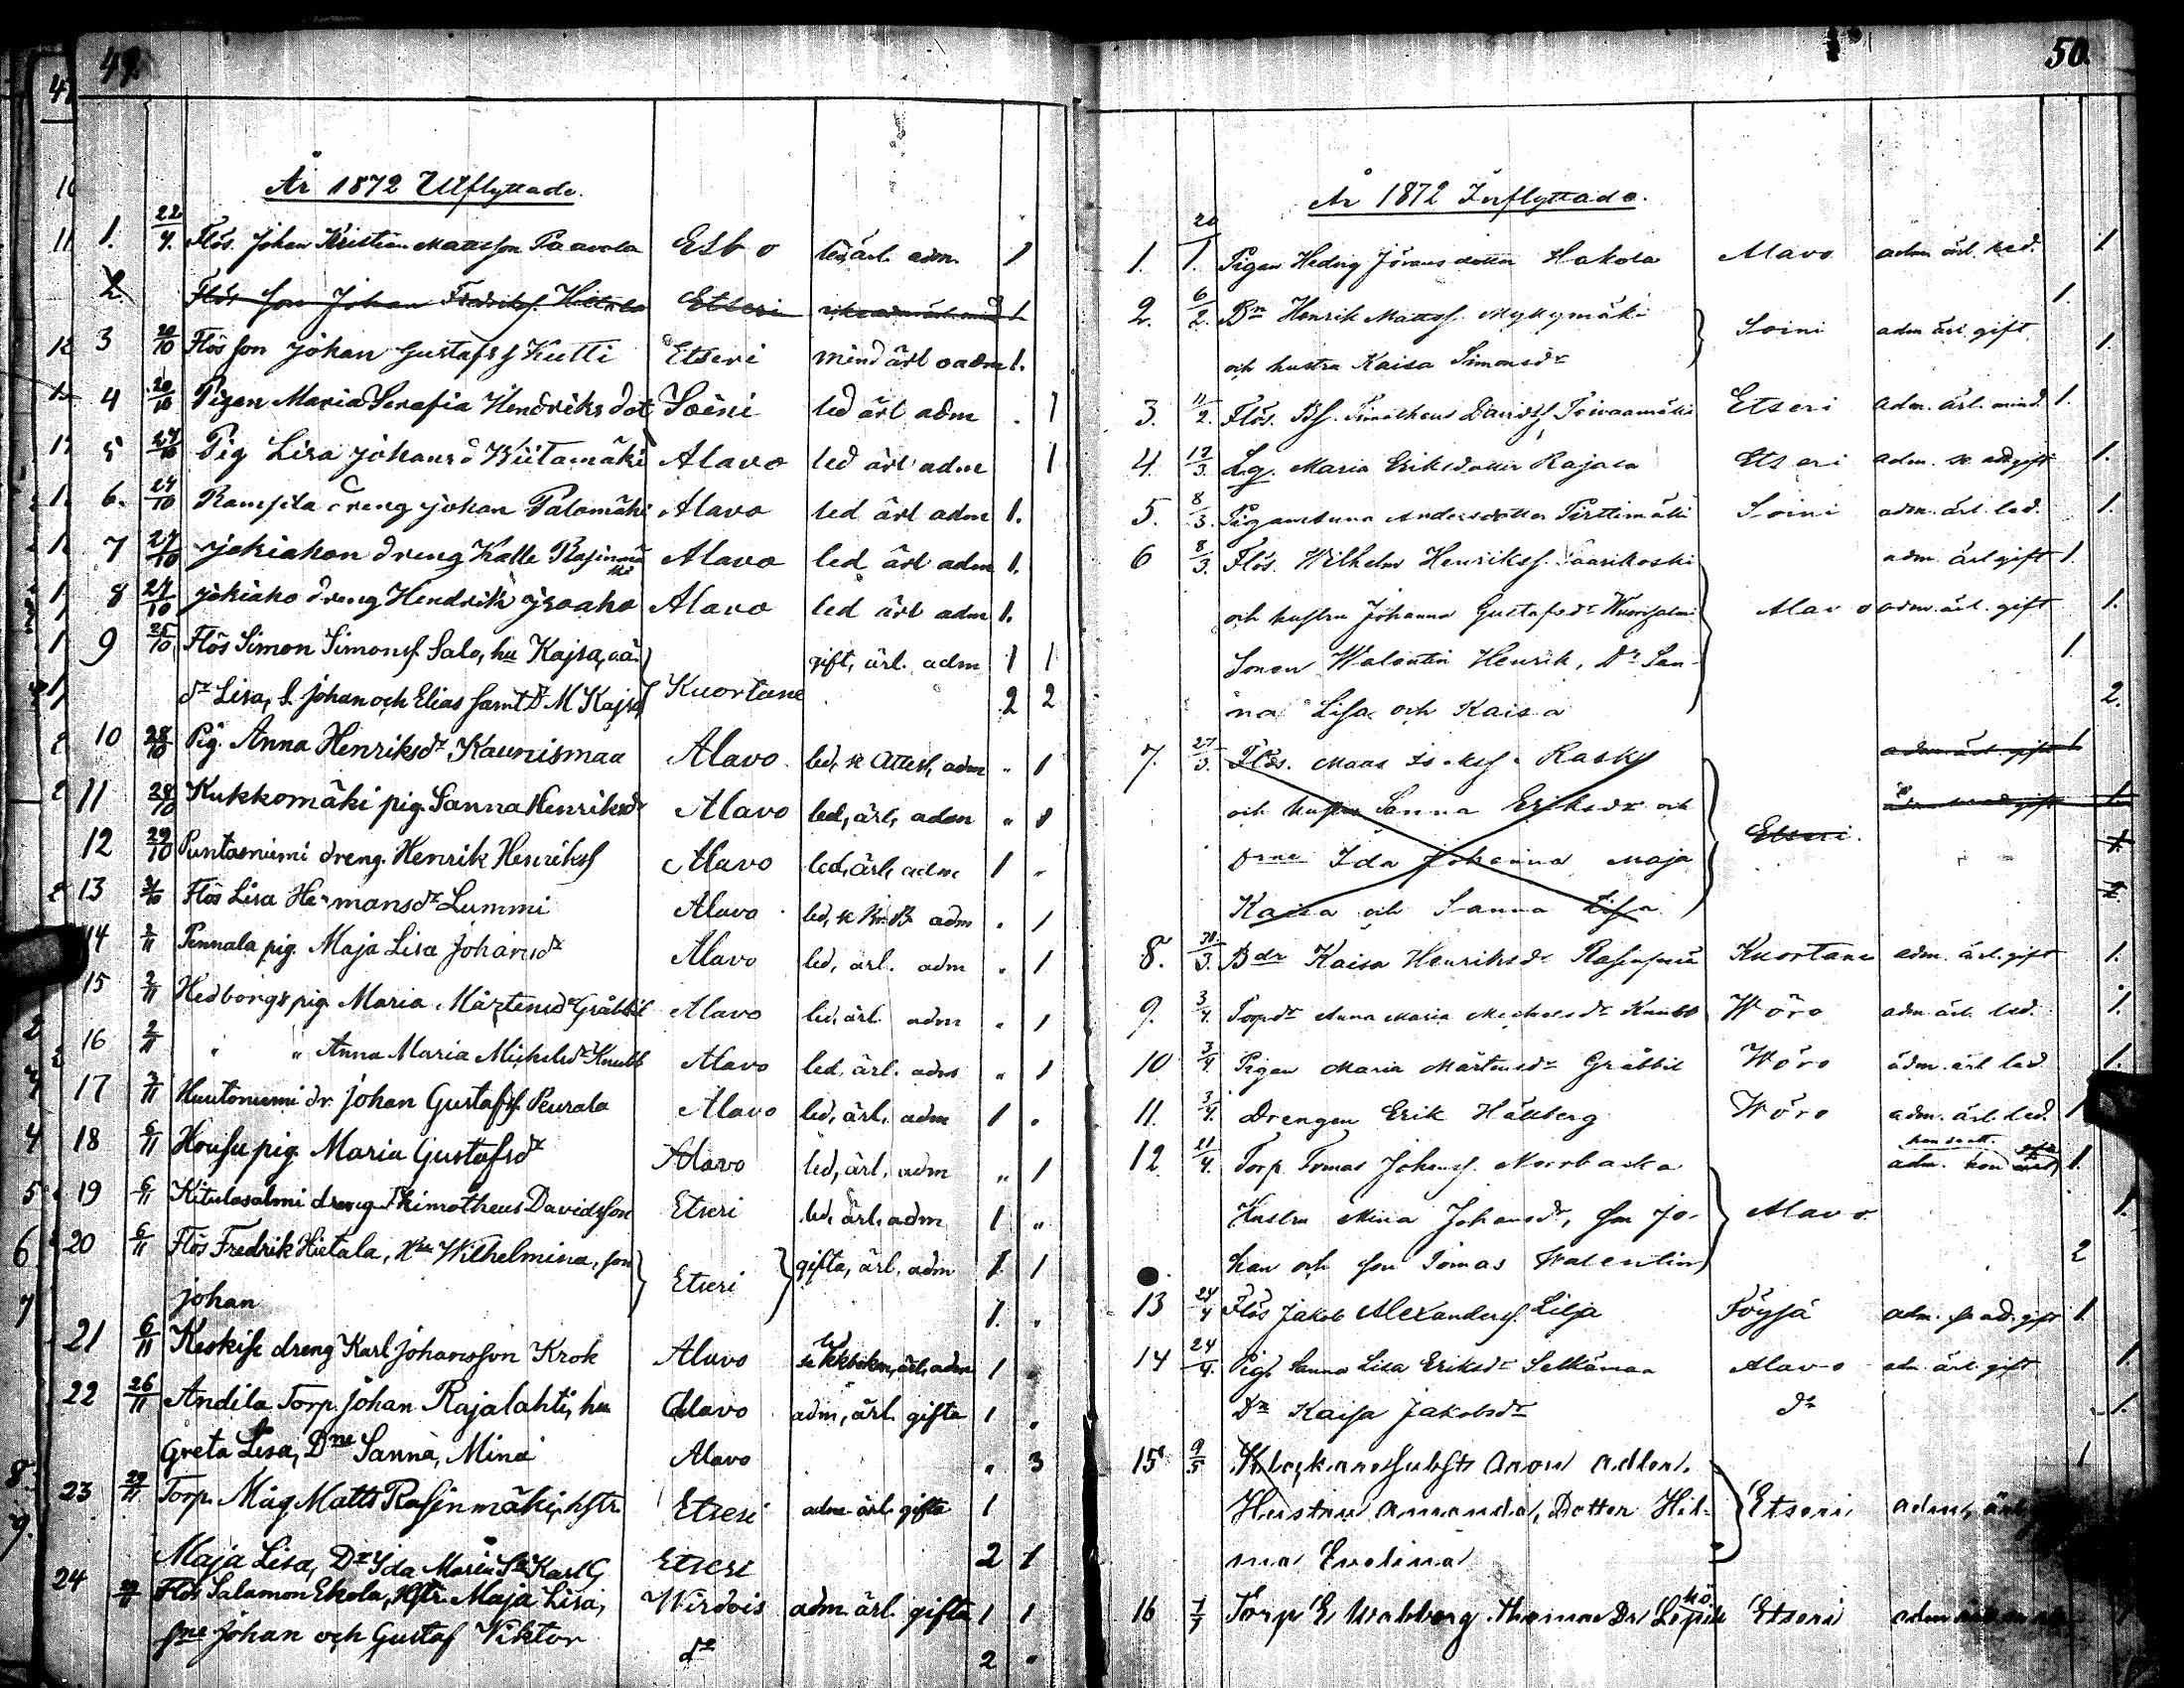 49.
År 1872 Utflyttade.
1. 22/9. Flös. Johan Kristian Mattsson Paavola Esbo led. ärl. adm. 1
2. Flös son Johan Fredriksf. Hietala Etseri 1
3 20/10 Flös son Johan Gustafsf Kutti Etseri mind ärl o adm 1.
4 20/10 Pigan Maria Serafia Hendriksdot Soini led ärl adm . 1
5 24/10 Pig Lisa Johansd Wiitamäki Alavo led ärl adm 1
6. 24/10 dreng Johan Palomäki Alavo led ärl adm 1.
7 24/10 Jokiahon dreng Kalle Rasinmäki Alavo led ärl adm 1.
8 24/10 Jokiaho dreng Hendrik Isoaho Alavo led ärl adm 1.
9 25/10 Flös Simon Simonsf. Salo, hu Kajsa, gift, ärl. adm 1 1
dr Lisa, S. Johan och Elias samt D M Kajsa Kuortane 2 2
10 28/10 Pig. Anna Henriksdr Kaunismaa Alavo. led, se Attest, adm " 1
11 28/10 Kukkomäki pig. Sanna Henriksdr Alavo led, ärl, adm " 1
12 29/10 Puntarniemi dreng. Henrik Henriksf Alavo led, ärl, adm 1 "
13 31/10 Flös Lisa Hermansdr Lummi Alavo led, se adm . 1
14 2/11 Pennala pig. Maja Lisa Johansdr Alavo led, ärl. adm " 1
15 2/11 Hedborgs pig. Maria Mårtensdr Gräbbil Alavo led, ärl. adm " 1
16 2/11 " " Anna Maria Michelsdr Knubb Alavo led, ärl. adm " 1
17 2/11 Huutoniemi dr Johan Gustafsf. Peurala Alavo led, ärl, adm 1 .
18 6/11 Housu pig. Maria Gustafsdr Alavo led, ärl, adm " 1
19 6/11 Kitulasalmi dreng Thimotheus Davidsson Etseri led, ärl, adm 1 "
20 6/11 Flös Fredrik Hietala, Hu Wilhelmina, son Etseri gifta, ärl, adm 1 1
Johan 1. "
21 6/11 Keskisi dreng Karl Johansson Krok Alavo led se Kkbokn, ärl. adm 1 "
22 26/11 Andila Torp. Johan Rajalahti, hu Alavo adm, ärl. gifta 1 "
Greta Lisa, Dne Sanna, Mina Alavo " 3
23 29/11 Torp. Måg Matts Rasinmäki, hstr. Etseri adm ärl gifta 1
Maja Lisa, Dr Ida Maria Sn Karl G Etseri 2 1
24 Flös Salamon Ekola, Hstr. Maja Lisa, Wirdois adm. ärl gifta 1 1
sne Johan och Gustaf Viktor do 2 "
50.
År 1872 Inflyttade.
1. 20/1. Pigan Hedvig Jöransdotter Hakola Alavo adm. ärl. led. 1
2. 6/2. Bn Henrik Mattsf. Myllymäki Soini adm ärl gift 1.
och hustru Kaisa Simonsdr 1.
3. 11/2. Flös. Timotheus Davidsf Etseri adm. ärl. mind. 1.
4. 12/3. Maria Eriksdotter Rajala Etseri adm. se adgift 1.
5. 8/3. Pigan Andersdotter Pirttimäki Soini adm. ärl. led. 1.
6 8/3. Flös. Wilhelm Henriksf. Saarikoski adm. ärl gift 1.
och hustru Johanna Gustafsdr Alavo adm. ärl. gift 1.
Sonen Walentin Henrik, Dr San- 1.
na Lisa och Kaisa 2.
7. 27/3. Flös. Matts Rask
och hustru Sanna Eriksdr och
Drne Ida Johanna Maja Etseri.
Kaisa och Sanna Lisa
8. 30/3. Bdr Kaisa Henriksdr Kuortane adm. ärl. gift 1.
9. 3/4. Torpdr Anna Maria Michelsdr Knubb Wörå adm. ärl. led. 1.
10 3/4. Pigan Maria Mårtensdr Gräbbil Wörå adm. ärl led 1.
11. 3/4. Drengen Erik Hällberg Wörå adm. ärl. led. 1
12 21/4. Torp. Tomas Johansf. Norrbacka adm. hon 1.
Hustru Mina Johansdr, son Jo- Alavo 1.
han och son Tomas Walentin 2
13 24/4 Flös Jakob Alexandersf. Lilja Töysä adm. se ad. gift 1.
14 24/4. Pig. Sanna Lisa Eriksdr Selkämaa Alavo adm ärl. gift 1.
Dr Kaisa Jakobsdr do 1.
15 9/5 Klockaresubst Aron Adlerc. 1
Hustru Amanda, Dotter Hil- Etseri adm, ärl
ma Evelina
16 Torp E Wabberg Etseri adm